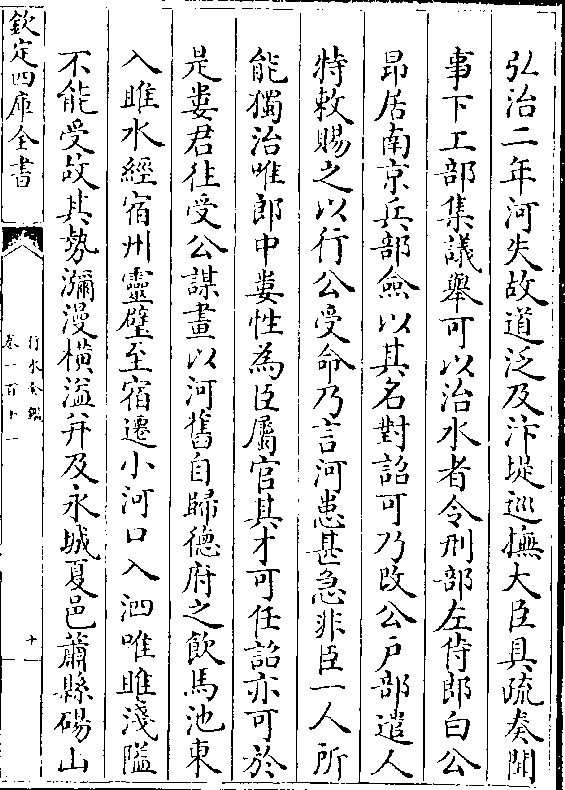 弘治二年河失故道泛及汴堤巡撫大臣具疏奏聞
事下工部集議舉可以治水者令刑部左侍郎白公
昂居南京兵部僉以其名對詔可乃改公戶部遣人
特敕賜之以行公受命乃言河患甚急非臣一人所
能獨治唯郎中婁性為臣屬官其才可任詔亦可於
是婁君往受公謀畫以河舊自歸德府之飲馬池東
入睢水經宿州靈璧至宿遷小河口入泗唯睢淺隘
不能受故其勢瀰漫橫溢并及永城夏邑蕭縣碭山
欽定四庫全書
行水金鑑
卷一百十一
十